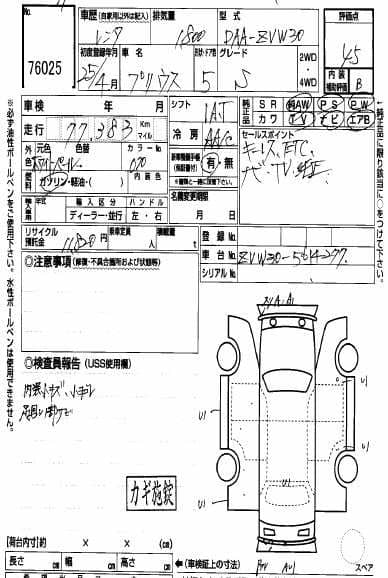 No.
76025
車歴 (自家用以外は記入) 排気量 型式
レンタ 1,800 DAA-ZVW30
初度登録年月 車名 ドア形状 グレード
25年4月 プリウス 5 S
2WD・4WD
評価点
4.5
内装補助評価
B
車検 年 月
シフト
IAT
走行 77,383 Km マイル
冷房
AAC
純正品 SR 純AW PS PW
カワ TV ナビ エアB
セールスポイント
キーレス、ETC、
ナビ・TV、純正
外装色 元色 色替 カラーNo. 内装色
ホワイトパール 070
燃料 ガソリン・軽油・( )
有・無
輸入車用 年式 輸入区分 ハンドル
ディーラー・並行 左・右
名義変更期限
月 日
リサイクル預託金 11,820円 乗車定員 人 積載量 t
登録No.
車台No. ZVW30-5614297
シリアルNo.
◎注意事項 (修復・不具合箇所および状態等)
◎検査員報告 (USS使用欄)
内装小キズ、小ヨゴレ
カギ施錠
A1
U1
U1
U1
U1
U1
U1
A1
【荷台内寸】約 × × (cm)
長さ cm 幅 cm 高さ cm ←(車検証上の寸法)
スペア
※必ず油性ボールペンをご使用下さい。水性ボールペンは使用できません。
純正品に限り該当に○をつけて下さい。